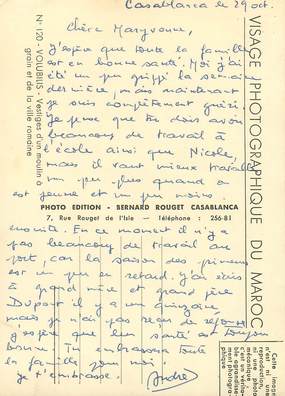 Casablanca le 29 oct.
Chère Maryvonne,
J'espère que toute la famille
est en bonne santé. Moi j'ai
été un peu grippé la semaine
dernière, mais maintenant
je suis complètement guéri.
Je pense que tu dois avoir
beaucoup de travail à
l'école ainsi que Nicole,
mais il vaut mieux travailler
un peu plus quand on
est jeune et un peu moins
PHOTO EDITION - BERNARD ROUGET CASABLANCA
7, Rue Rouget de l'Isle — Téléphone : 256-81
ensuite. En ce moment il n'y a
pas beaucoup de travail au
port, car la saison des primeurs
est un peu en retard. J'ai écris
à grand mère et grand père
Dupont il y a un quinzaine
mais je n'ai pas reçu de réponse
j'espère que leur santé est toujours
bonne. Tu embrasseras toute
la famille pour moi.
je t'embrasse.
André
N° 120 - VOLUBILIS - Vestiges d'un moulin à
grain et de la ville romaine
VISAGE PHOTOGRAPHIQUE DU MAROC
Cette image
n'est ni une
reproduction,
ni une photo
c'est un vérita-
ble agrandisse-
ment photogra-
phique